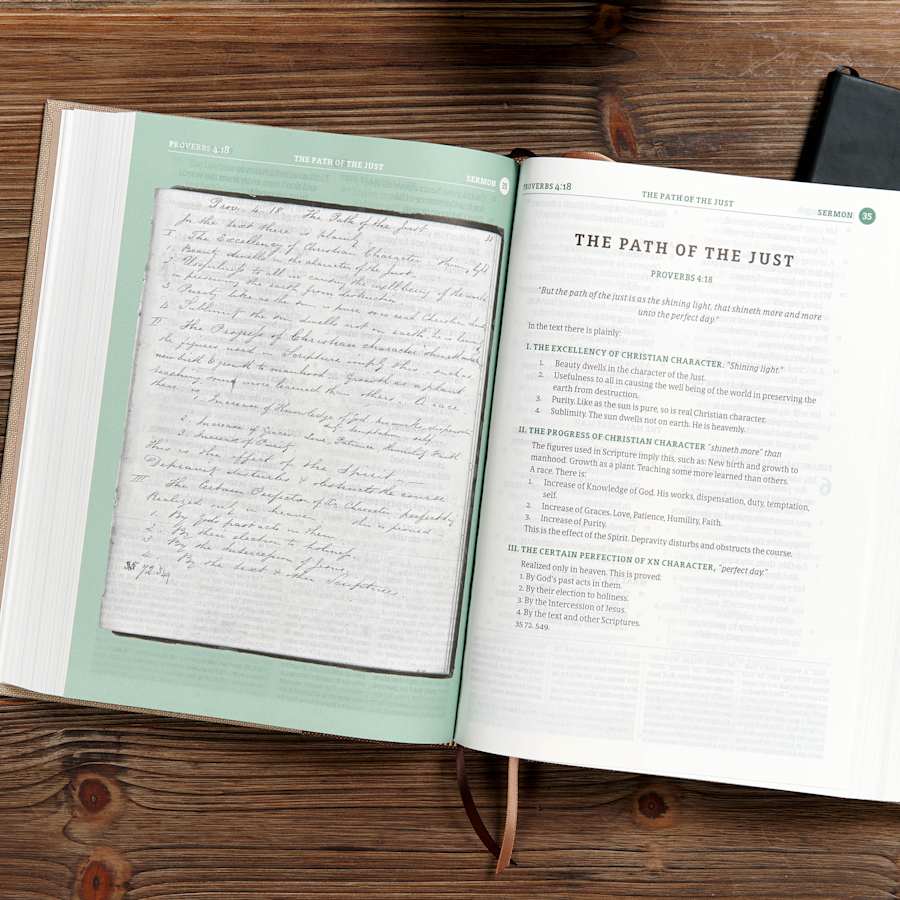 PROVERBS 4:18
THE PATH OF THE JUST
SERMON
Prov. 4. 18. The Path of the Just
In the text there is plainly
I. The Excellency of Christian Character. Shining light
1. Beauty dwells in the character of the Just.
2. Usefulness to all in causing the well being of the world
in preserving the earth from destruction
3. Purity. Like as the sun is pure so is real Christian char
4. Sublimity. The sun dwells not on earth. he is heavenly
II. The Progress of Christian character shineth more
the figures used in Scripture imply this. such as
new birth & growth to manhood. Growth as a plant
teaching some more learned than others. A race.
there is
1. Increase of Knowledge of God, his works, dispensation
duty, self.
2. Increase of Graces. Love, Patience, Humility, Faith
3. Increase of Purity.
This is the effect of the Spirit.
Depravity disturbs & obstructs the course
III. The Certain Perfection of Xn Character, perfect day
Realized only in heaven. this is proved
1. By Gods past acts in them.
2. By their election to holiness
3. By the Intercession of Jesus,
4. By the text & other Scriptures.
35 72. 549
PROVERBS 4:18
THE PATH OF THE JUST
SERMON 35
THE PATH OF THE JUST
PROVERBS 4:18
"But the path of the just is as the shining light, that shineth more and more
unto the perfect day."
In the text there is plainly:
I. THE EXCELLENCY OF CHRISTIAN CHARACTER. "Shining light."
1. Beauty dwells in the character of the Just.
2. Usefulness to all in causing the well being of the world in preserving the
earth from destruction.
3. Purity. Like as the sun is pure, so is real Christian character.
4. Sublimity. The sun dwells not on earth. He is heavenly.
II. THE PROGRESS OF CHRISTIAN CHARACTER "shineth more" than
The figures used in Scripture imply this, such as: New birth and growth to
manhood. Growth as a plant. Teaching some more learned than others.
A race. There is:
1. Increase of Knowledge of God. His works, dispensation, duty, temptation,
self.
2. Increase of Graces. Love, Patience, Humility, Faith.
3. Increase of Purity.
This is the effect of the Spirit. Depravity disturbs and obstructs the course.
III. THE CERTAIN PERFECTION OF XN CHARACTER, "perfect day."
Realized only in heaven. This is proved:
1. By God's past acts in them.
2. By their election to holiness.
3. By the Intercession of Jesus.
4. By the text and other Scriptures.
35 72. 549.